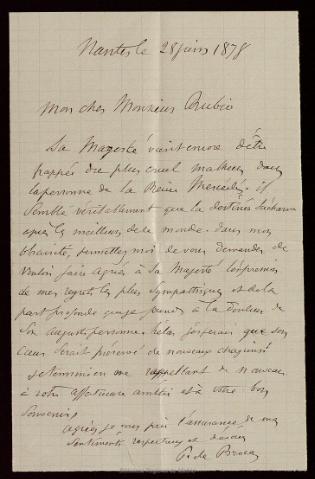 Nantes le 28 juin 1878
Mon cher Monsieur Rubio
Sa Majesté vient encore d'être
frappée du plus cruel malheur dans
la personne de la Reine Mercédès. il
semble véritablement que la destinée s'acharne
après les meilleurs de ce monde. Dans mon
obscurité, permettez moi de vous demander de
vouloir faire agréer à Sa Majesté l'expression
de mes regrets les plus sympathiques et de la
part profonde que je prends à la douleur de
Son auguste personne. hélas j'espérais que son
cœur serait préservé de nouveaux chagrins!
Je termine en me rappellant de nouveau
à votre affectueuse amitié et à votre bon
souvenir
agréez je vous prie l'assurance de mes
sentiments respectueux et dévoués
P. de